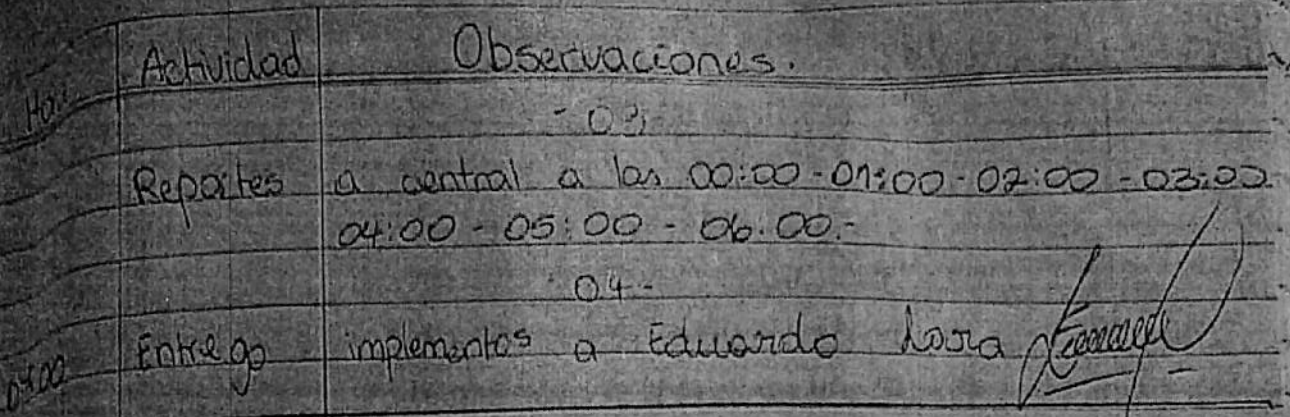 Actividad Observaciones.
- 03
Reportes a central a las 00:00 - 01:00 - 02:00 - 03:00
04:00 - 05:00 - 06:00.-
04-
Entrego implementos a Eduardo Lara